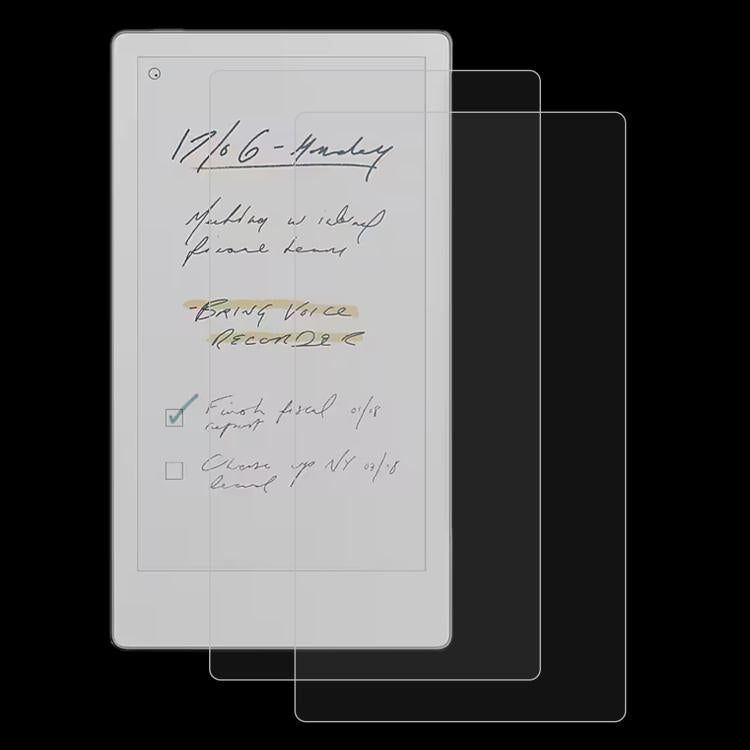 17/06 - Monday
Meeting w
team
- BRING VOICE
RECORDER
Finish fiscal 01/08
report
Chase up NY 02/18